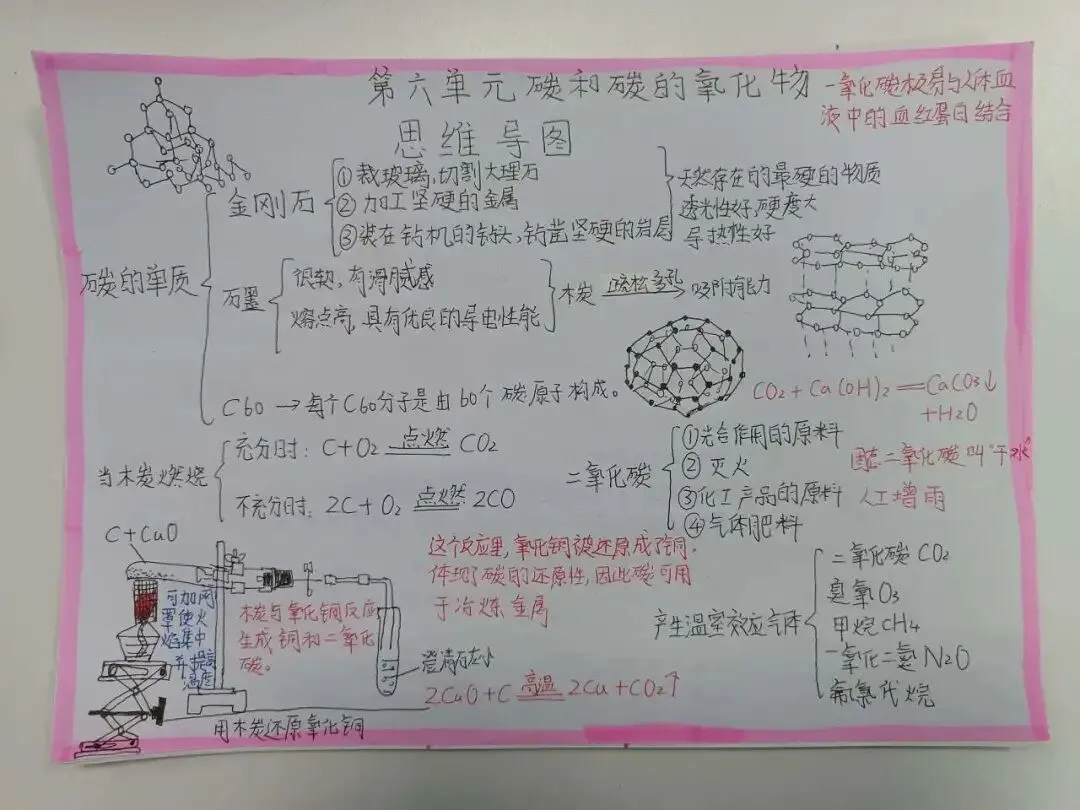 第六单元碳和碳的氧化物
思维导图
一氧化碳极易与人体血
液中的血红蛋白结合
碳的单质
金刚石
①裁玻璃,切割大理石
②加工坚硬的金属
③装在钻机的钻头,钻凿坚硬的岩层
天然存在的最硬的物质
透光性好,硬度大
导热性好
石墨
很软,有滑腻感
熔点高,具有优良的导电性能
木炭 疏松多孔 吸附能力
C60→每个C60分子是由60个碳原子构成。
CO₂+Ca(OH)₂=CaCO₃↓
+H₂O
当木炭燃烧
充分时:C+O₂ 点燃 CO₂
不充分时:2C+O₂ 点燃 2CO
二氧化碳
①光合作用的原料
②灭火
③化工产品的原料
④气体肥料
固态二氧化碳叫"干冰"
人工增雨
C+CuO
可加网
罩使火
焰集中
并提高
温度
木炭与氧化铜反应
生成铜和二氧化
碳。
这个反应里,氧化铜被还原成了铜.
体现了碳的还原性,因此碳可用
于冶炼金属
澄清石灰水
2CuO+C 高温 2Cu+CO₂↑
用木炭还原氧化铜
产生温室效应气体
二氧化碳CO₂
臭氧O₃
甲烷CH₄
一氧化二氮N₂O
氟氯代烷